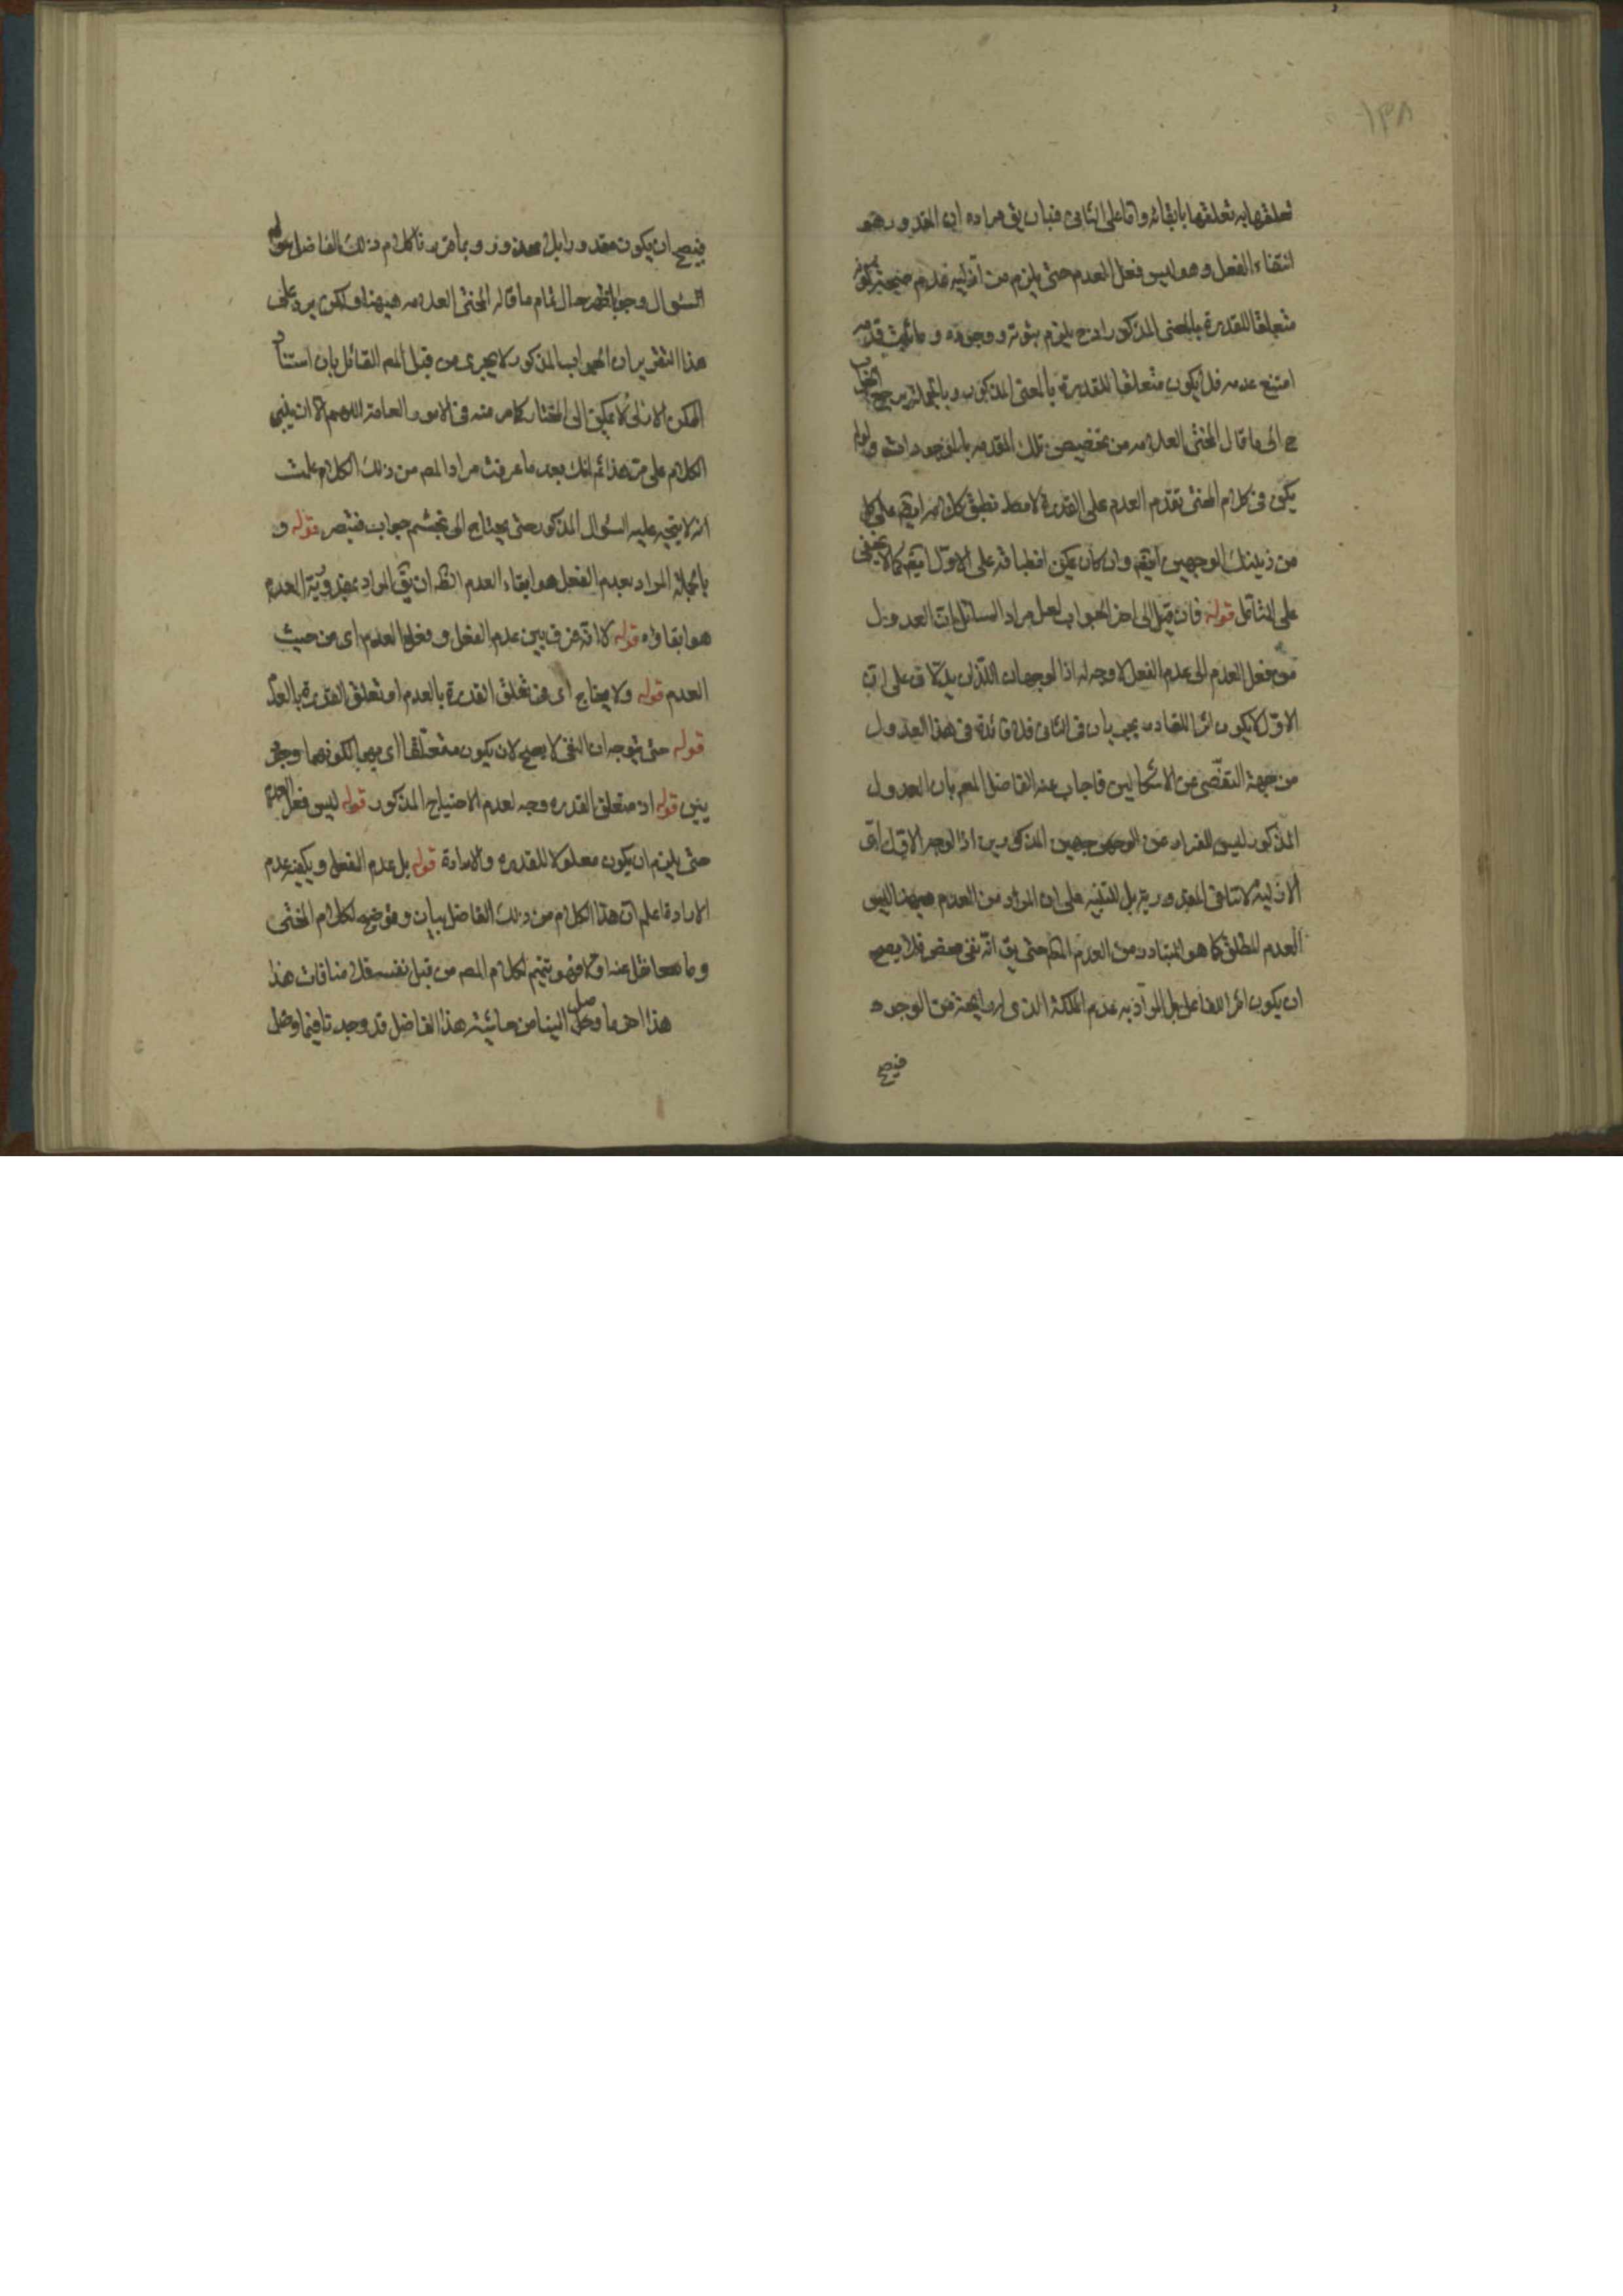 ١٣٨
تعلقها به تعلقها بابقائه واما على الثانى فبان يق مراده ان المقدور هو
انتفاء الفعل وهو ليس فعل العدم حتى يلزم من
متعلقا للقدرة بالمعنى المذكور اذ ح يلزم ثبوته ووجوده وما ثبت قدمه
امتنع عدمه فلا يكون متعلقا للقدرة بالمعنى المذكور وبالجملة يرجع الجواب
ح الى ما قال المحشى العلامه من تخصيص تلك المقدمه بالموجودات
يكون فى كلام المحشى تقدم العدم على القدرة لا مط تطبق كلامه ايضا على كل
من ذينك الوجهين ايضا وان كان يمكن انطباقه على الاول ايضا كما لا يخفى
على المتأمل قوله فان قيل الى اخر الجواب لعل مراد السائل ان العدول
من فعل العدم الى عدم الفعل لا وجه له اذ الوجهان اللذان يدلان على ان
الاول لا يكون اثرا للقادر يجريان فى الثانى فلا فائدة فى هذا العدول
من جهة التفصى عن الاشكالين فاجاب عنه الفاضل المعم بان العدول
المذكور ليس للفرار من الوجهين المذكورين اذ الوجه الاول ان
الازلية لا تنافى المقدورية بل للتنبيه على ان المراد من العدم ههنا ليس
العدم المطلق كما هو المتبادر من العدم حتى يق انه نفى محض فلا يصح
ان يكون اثرا للفاعل بل المراد به عدم الملكة الذى له رايحة من الوجود
فيصح
فيصح ان يكون مقدورا بلا محذور وبما قررنا كلام ذلك الفاضل
السؤال وجوابا ظهر حال تمام ما قاله المحشى العلامه ههنا ولكن يرد على
هذا التقرير ان الجواب المذكور لا يجرى من قبل المعم القائل بان استناد
الممكن الازلى لا يمكن الى المختار كما مر منه فى الامور العامة اللهم الا ان يبنى
الكلام على ثم انك بعد ما عرفت مراد المعم من ذلك الكلام علمت
انه لا يتجه عليه السؤال المذكور حتى يحتاج الى تجشم جواب فتبصر قوله و
بالجملة المراد بعدم الفعل هو ابقاء العدم الظ ان يق المراد بمقدورية العدم
هو ابقاؤه قوله لا انه فرق بين عدم الفعل وفعل العدم اى من حيث
العدم قوله ولا يحتاج اى فى تعلق القدرة بالعدم او تعلق القدرة بالعدم
قوله حتى يتوجه ان النفى لا يصح لان يكون متعلقا اى بهما لكونهما
قوله ان متعلق القدره وجه لعدم الاحتياج المذكور قوله ليس فعل العدم
حتى يلزم ان يكون معلولا للقدره والارادة قوله بل عدم الفعل ويكفيه عدم
الارادة اعلم ان هذا الكلام من ذلك الفاضل بيان وتوضيح لكلام المحشى
وما نقل عنه اولا فهو تتميم لكلام المعم من قبل نفسه فلا منافات هذا
هذا اخر ما وصل الينا من حاشية هذا الفاضل قد وجد